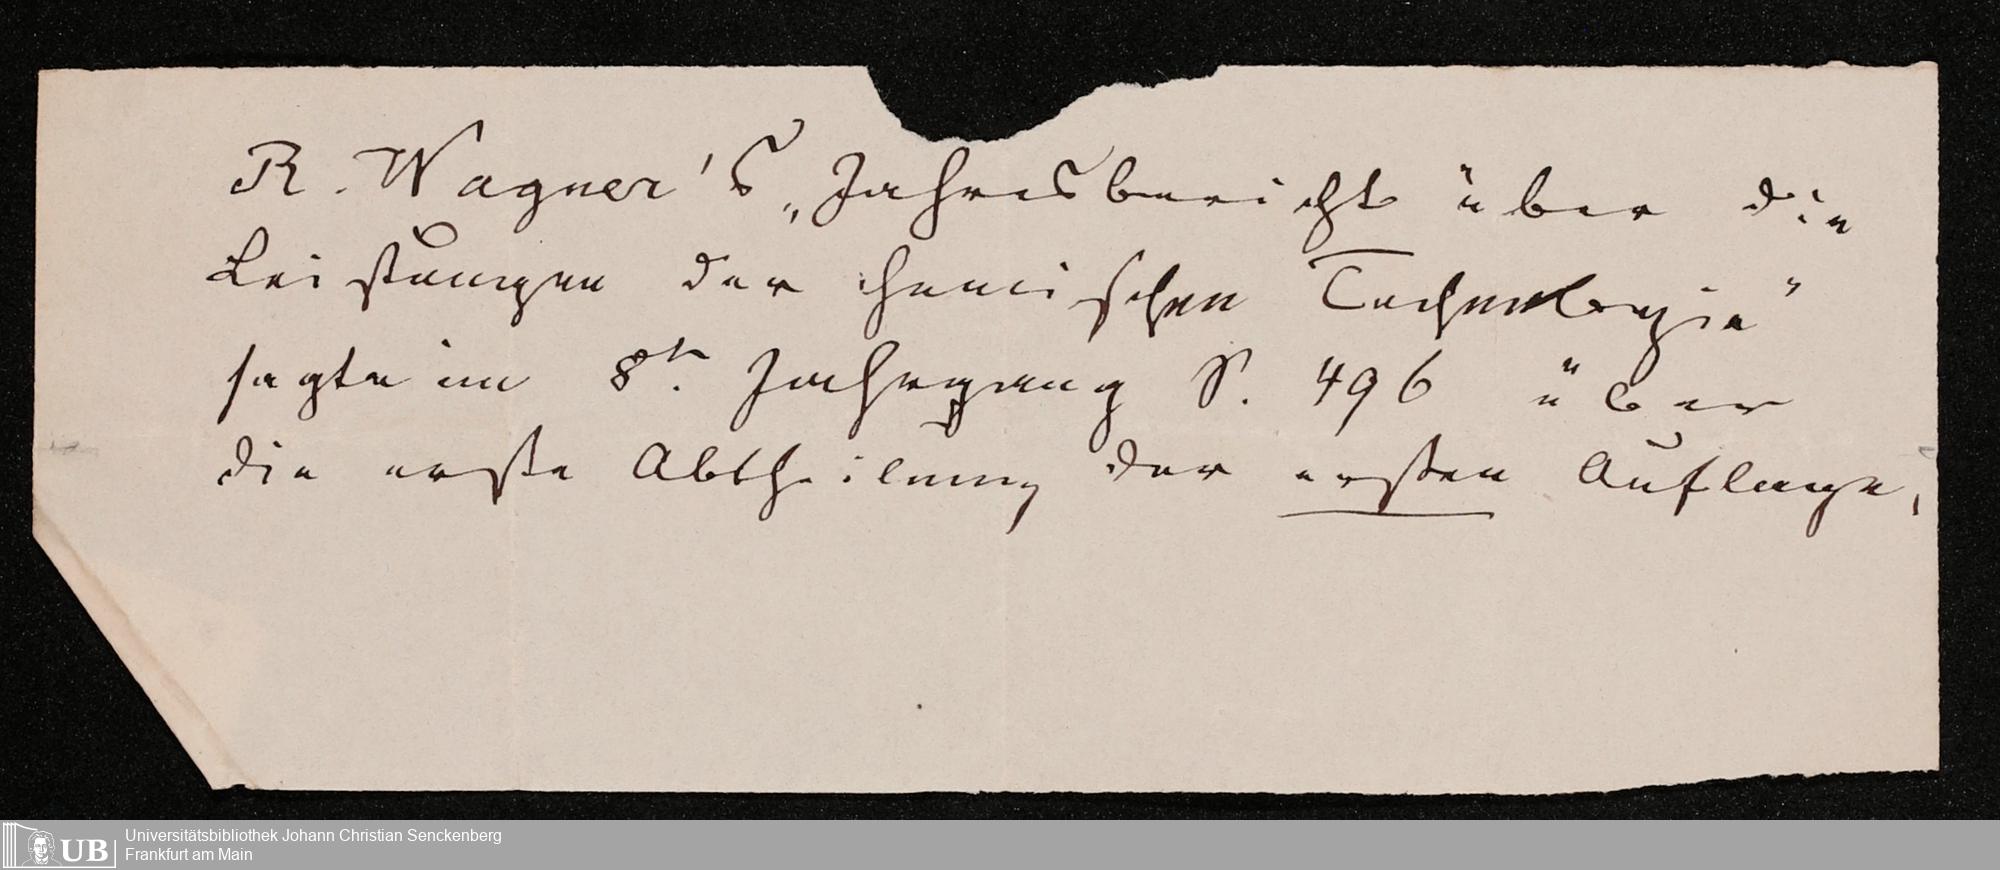 R. Wagner's „Jahresbericht über die
Leistungen der chemischen Technologie"
sagte im 8ten. Jahrgang S. 496 über
die erste Abtheilung der ersten Auflage,
UB
Universitätsbibliothek Johann Christian Senckenberg
Frankfurt am Main